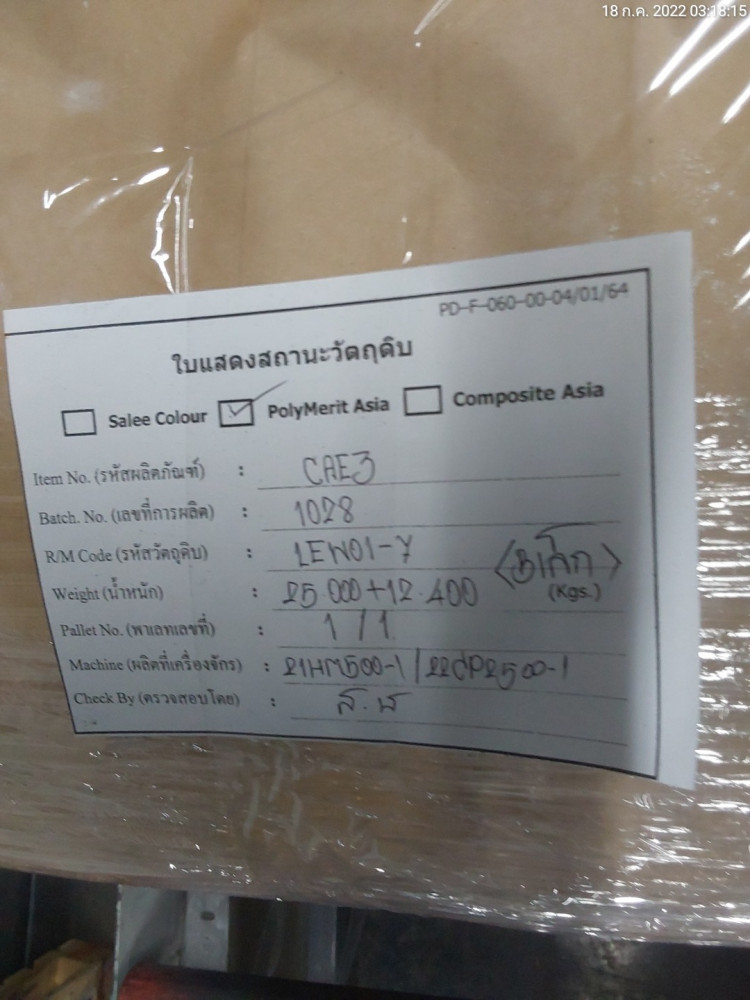 18 ก.ค. 2022 03:18:15
PD-F-060-00-04/01/64
ใบแสดงสถานะวัตถุดิบ
Salee Colour PolyMerit Asia Composite Asia
Item No. (รหัสผลิตภัณฑ์) : CAE3
Batch. No. (เลขที่การผลิต) : 1028
R/M Code (รหัสวัตถุดิบ) : LEW01-7
Weight (น้ำหนัก) : 25.000+12.400 (Kgs.)
Pallet No. (พาเลทเลขที่) : 1/1
Machine (ผลิตที่เครื่องจักร) : 21HM500-1/22CP2500-1
Check By (ตรวจสอบโดย) :